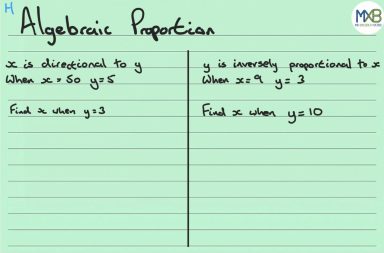 H
Algebraic Proportion
MXB
x is directional to y
When x = 50 y = 5
Find x when y = 3
y is inversely proportional to x
When x = 9 y = 3
Find x when y = 10